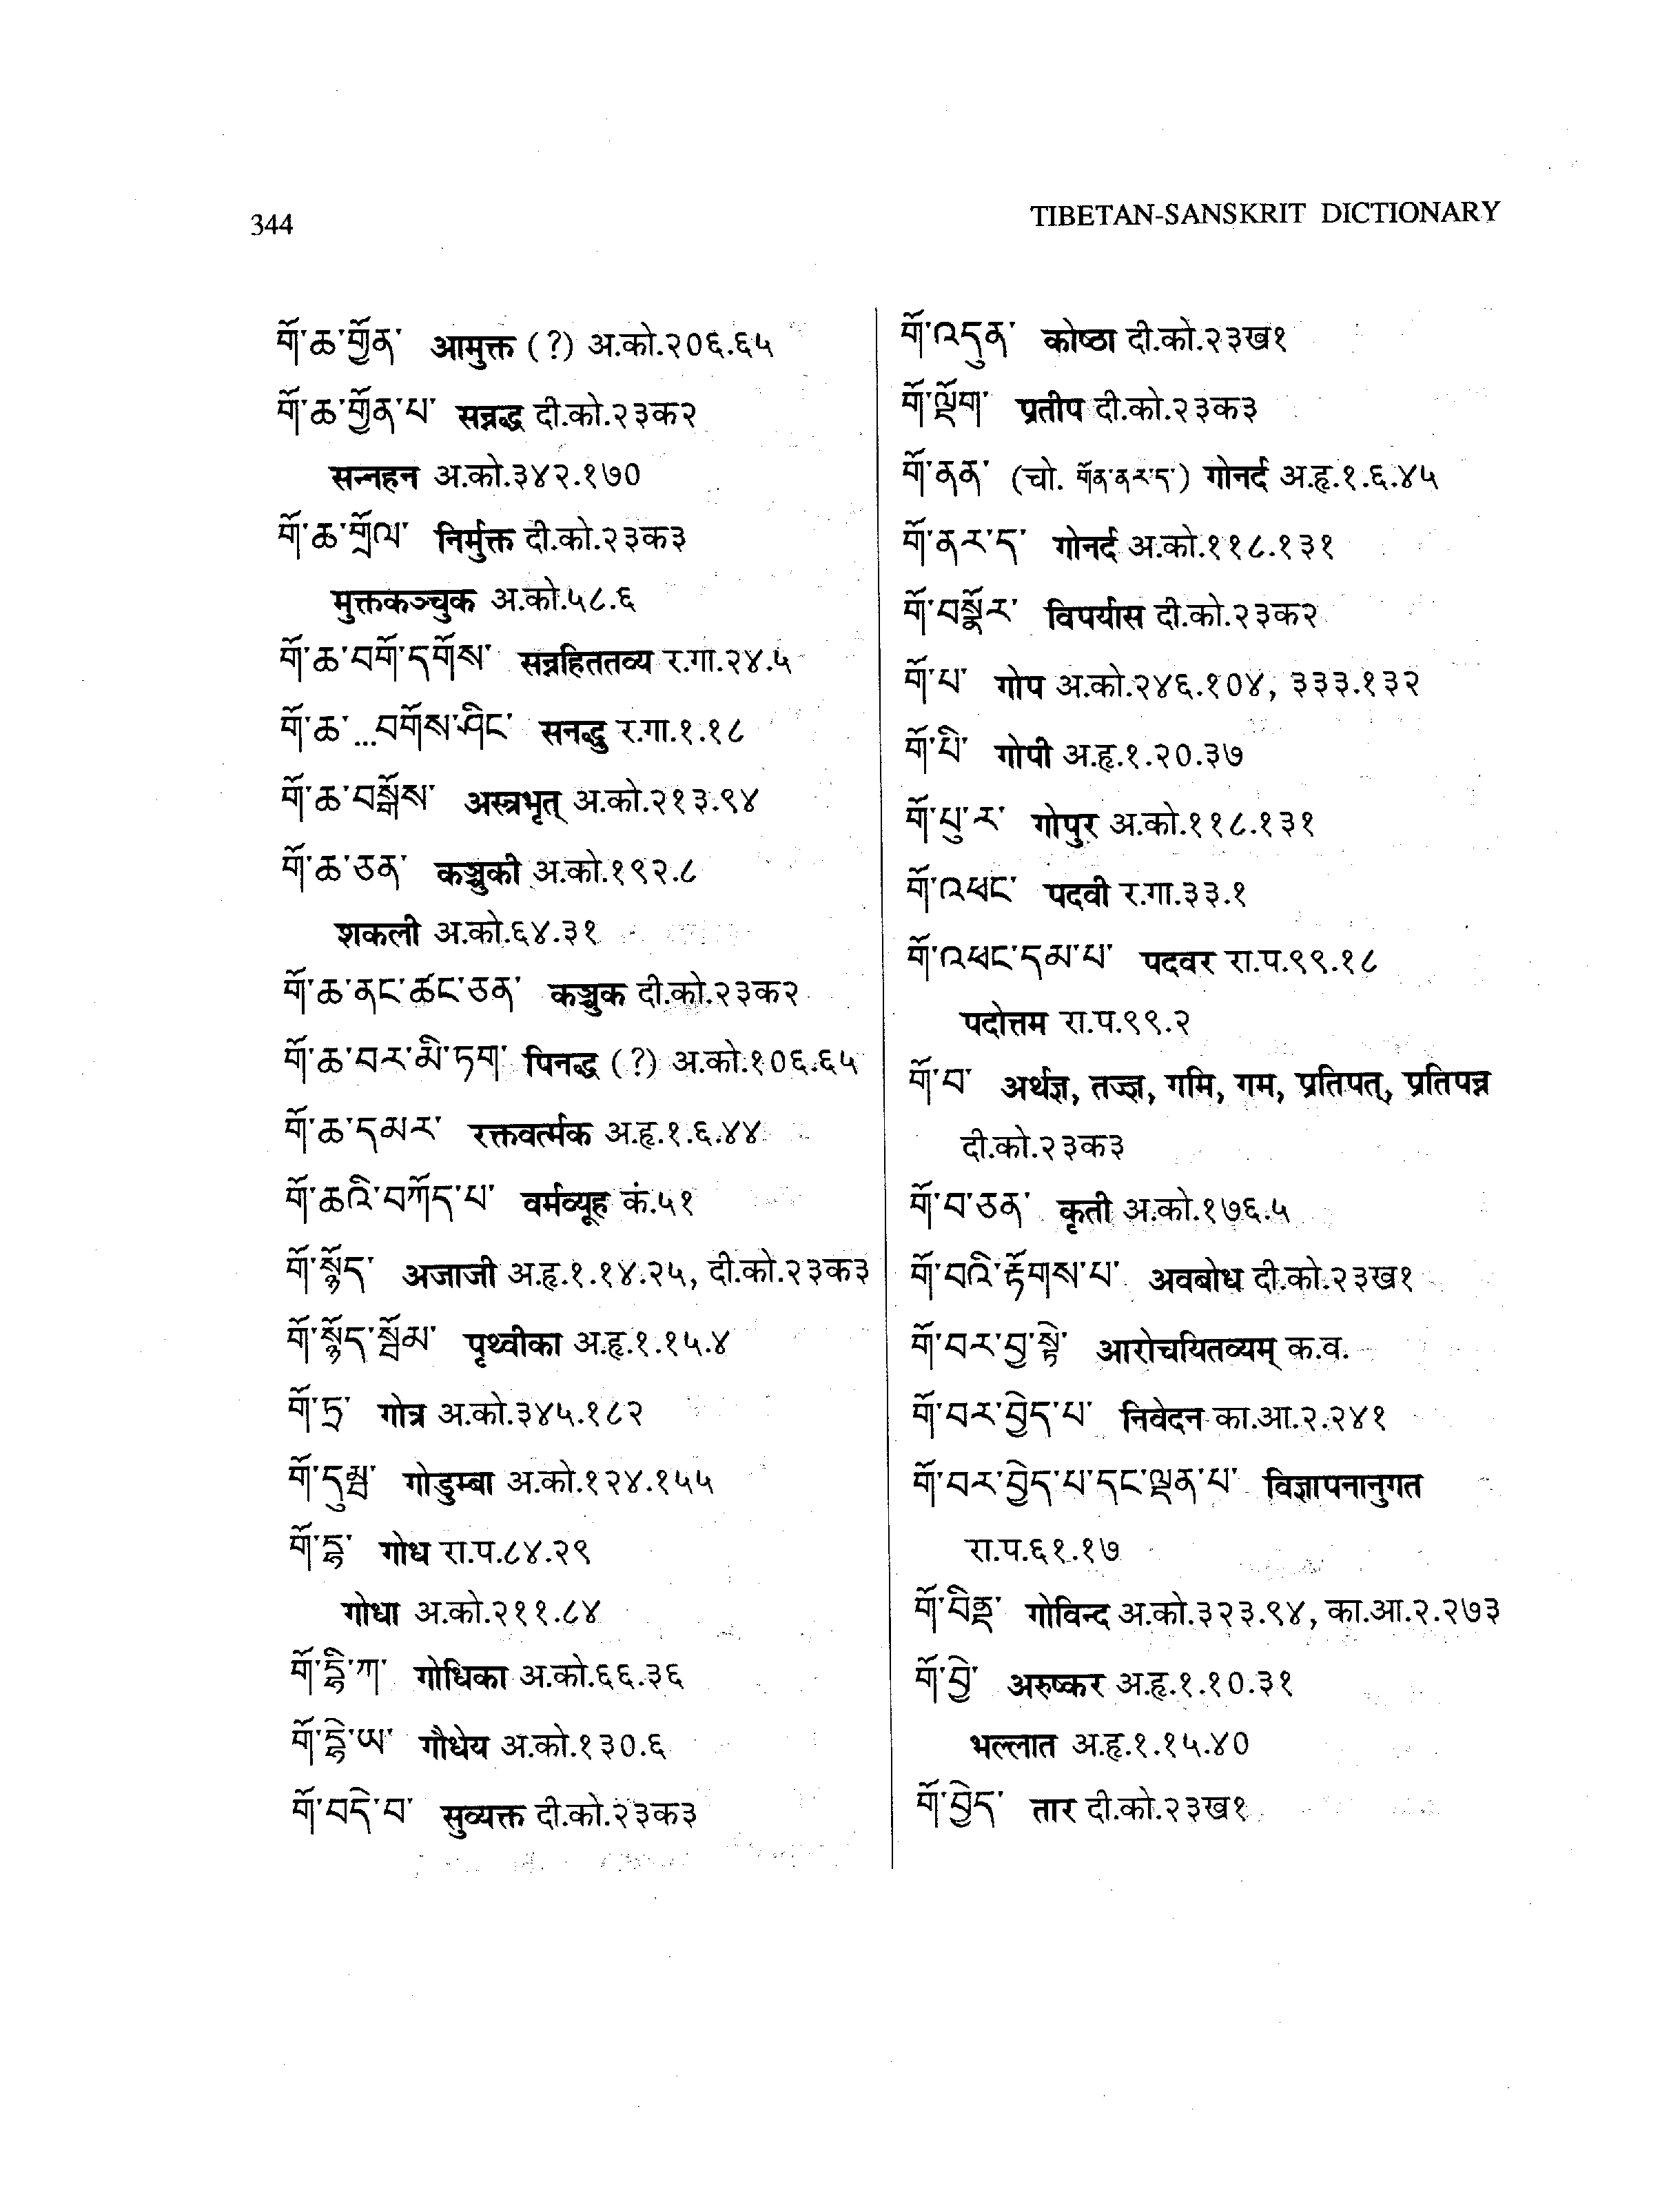 344
TIBETAN-SANSKRIT DICTIONARY
གོ་ཆ་གྱོན་ आमुक्त (?) अ.को.२०६.६५
གོ་ཆ་གྱོན་པ་ सन्नद्ध दी.को.२३क२
सन्नहन अ.को.३४२.१७०
གོ་ཆ་གྲོལ་ निर्मुक्त दी.को.२३क३
मुक्तकञ्चुक अ.को.५८.६
གོ་ཆ་བགོ་དགོས་ सन्नहिततव्य र.गा.२४.५
གོ་ཆ་...བགོས་ཤིང་ सनद्धु र.गा.१.१८
གོ་ཆ་བསྒོས་ अस्त्रभृत् अ.को.२१३.९४
གོ་ཆ་ཅན་ कञ्चुकी अ.को.१९२.८
शकली अ.को.६४.३१
གོ་ཆ་ནང་ཚང་ཅན་ कञ्चुक दी.को.२३क२
གོ་ཆ་བར་མི་ཏག་ पिनद्ध (?) अ.को.१०६.६५
གོ་ཆ་དམར་ रक्तवर्त्मक अ.हृ.१.६.४४
གོ་ཆའི་བཀོད་པ་ वर्मव्यूह कं.५१
གོ་སྙོད་ अजाजी अ.हृ.१.१४.२५, दी.को.२३क३
གོ་སྙོད་སྦོམ་ पृथ्वीका अ.हृ.१.१५.४
གོ་ཏྲ་ गोत्र अ.को.३४५.१८२
གོ་དུམྦ་ गोडुम्बा अ.को.१२४.१५५
གོ་དྷ་ गोध रा.प.८४.२९
गोधा अ.को.२११.८४
གོ་དྷི་ཀ་ गोधिका अ.को.६६.३६
གོ་དྷེ་ཡ་ गौधेय अ.को.१३०.६
གོ་བདེ་བ་ सुव्यक्त दी.को.२३क३
གོ་འདུན་ कोष्ठा दी.को.२३ख१
གོ་ལྡོག་ प्रतीप दी.को.२३क३
གོ་ནན་ (चो. གོན་ནར་ད་) गोनर्द अ.हृ.१.६.४५
གོ་ནར་ད་ गोनर्द अ.को.११८.१३१
གོ་བསྣོར་ विपर्यास दी.को.२३क२
གོ་པ་ गोप अ.को.२४६.१०४, ३३३.१३२
གོ་པི་ गोपी अ.हृ.१.२०.३७
གོ་པུ་ར་ गोपुर अ.को.११८.१३१
གོ་འཕང་ पदवी र.गा.३३.१
གོ་འཕང་དམ་པ་ पदवर रा.प.९९.१८
पदोत्तम रा.प.९९.२
གོ་བ་ अर्थज्ञ, तज्ज्ञ, गमि, गम, प्रतिपत्, प्रतिपन्न
दी.को.२३क३
གོ་བ་ཅན་ कृती अ.को.१७६.५
གོ་བའི་རྟོགས་པ་ अवबोध दी.को.२३ख१
གོ་བར་བྱ་སྟེ་ आरोचयितव्यम् क.व.
གོ་བར་བྱེད་པ་ निवेदन का.आ.२.२४१
གོ་བར་བྱེད་པ་དང་ལྡན་པ་ विज्ञापनानुगत
रा.प.६१.१७
གོ་བིནྡ་ गोविन्द अ.को.३२३.९४, का.आ.२.२७३
གོ་བྱེ་ अरुष्कर अ.हृ.१.१०.३१
भल्लात अ.हृ.१.१५.४०
གོ་བྱེད་ तार दी.को.२३ख१